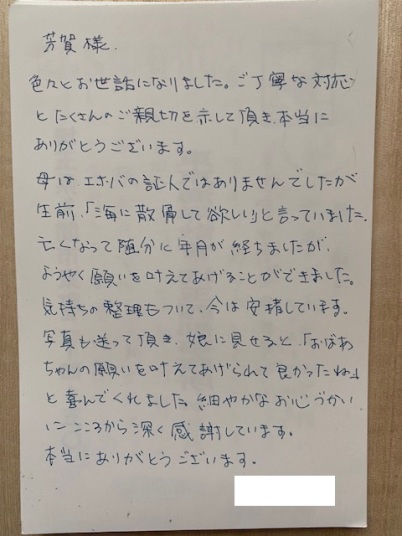 芳賀様.
色々とお世話になりました。ご丁寧な対応
とたくさんのご親切を示して頂き、本当に
ありがとうございます。
母は、エホバの証人ではありませんでしたが
生前、「海に散骨して欲しい」と言っていました。
亡くなって随分に年月が経ちましたが、
ようやく願いを叶えてあげることができました。
気持ちの整理もついて、今は安堵しています。
写真も送って頂き、娘に見せると、「おばあ
ちゃんの願いを叶えてあげられて良かったね」
と喜んでくれました。細やかなお心づかい
に こころから深く感謝しています。
本当にありがとうございます。